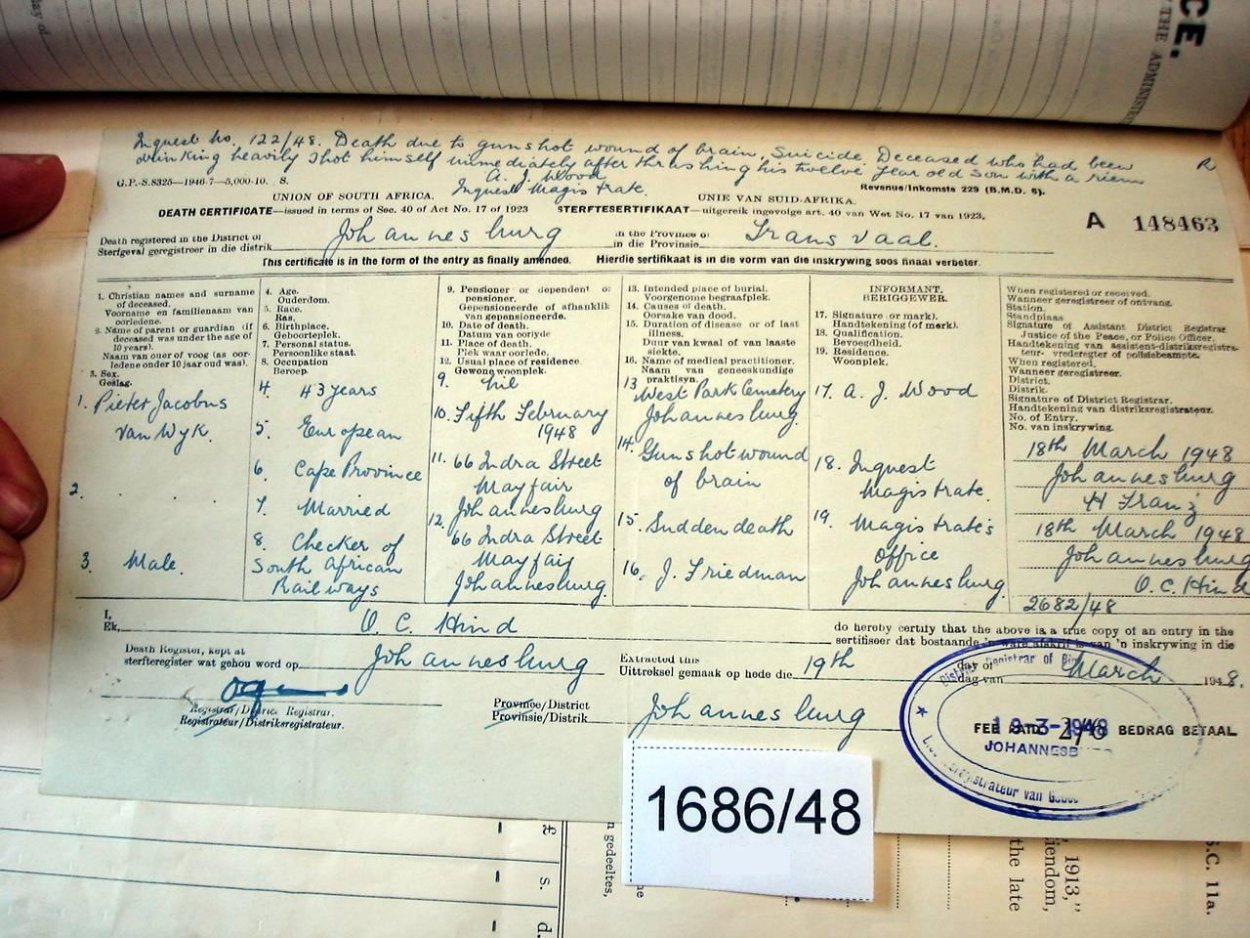 CE.
THE ADMINIST
day of
Inquest No. 122/48. Death due to gunshot wound of brain, Suicide. Deceased who had been
drinking heavily shot himself immediately after thrashing his twelve year old son with a riem
A. J. Wood
Inquest Magistrate.
G.P.-S.8325—1946-7—5,000-10. S.
Revenue/Inkomste 229 (B.M.D. 6).
UNION OF SOUTH AFRICA.
UNIE VAN SUID-AFRIKA.
DEATH CERTIFICATE—issued in terms of Sec. 40 of Act No. 17 of 1923
STERFTESERTIFIKAAT—uitgereik ingevolge art. 40 van Wet No. 17 van 1923.
A 148463
Death registered in the District of
Sterfgeval geregistreer in die distrik
Johannesburg
in the Province of
in die Provinsie
Transvaal.
This certificate is in the form of the entry as finally amended.
Hierdie sertifikaat is in die vorm van die inskrywing soos finaal verbeter.
1. Christian names and surname
of deceased.
Voorname en familienaam van
oorledene.
2. Name of parent or guardian (if
deceased was under the age of
10 years).
Naam van ouer of voog (as oor-
ledene onder 10 jaar oud was).
3. Sex.
Geslag.
1. Pieter Jacobus
van Wyk.
2.
3. Male.
4. Age.
Ouderdom.
5. Race.
Ras.
6. Birthplace.
Geboorteplek.
7. Personal status.
Persoonlike staat.
8. Occupation
Beroep.
4. 43 years
5. European
6. Cape Province
7. Married
8. Checker of
South African
Railways
9. Pensioner or dependent of
pensioner.
Gepensioneerde of afhanklik
van gepensioneerde.
10. Date of death.
Datum van oorlyde
11. Place of death.
Plek waar oorlede.
12. Usual place of residence.
Gewone woonplek.
9. Nil
10. Fifth February
1948
11. 66 Indra Street
Mayfair
Johannesburg
12. 66 Indra Street
Mayfair
Johannesburg.
13. Intended place of burial.
Voorgenome begraafplek.
14. Causes of death.
Oorsake van dood.
15. Duration of disease or of last
illness.
Duur van kwaal of van laaste
siekte.
16. Name of medical practitioner.
Naam van geneeskundige
praktisyn.
13. West Park Cemetery
Johannesburg.
14. Gunshot wound
of brain
15. Sudden death
16. J. Friedman
INFORMANT.
BERIGGEWER.
17. Signature or mark).
Handtekening (of mark).
18. Qualification.
Bevoegdheid.
19. Residence.
Woonplek.
17. A. J. Wood
18. Inquest
Magistrate.
19. Magistrate's
Office
Johannesburg.
When registered or received.
Wanneer geregistreer of ontvang.
Station.
Standplaas
Signature of Assistant District Registrar
Justice of the Peace, or Police Officer.
Handtekening van assistent-distriksregistra-
teur- vrederegter of polisiebeampte.
When registered.
Wanneer geregistreer.
District.
Distrik.
Signature of District Registrar.
Handtekening van distriksregistrateur.
No. of Entry.
No. van inskrywing.
18th March 1948
Johannesburg
H Franz
18th March 1948
Johannesburg
O. C. Hind
2682/48
I,
Ek,
O. C. Hind
do hereby certify that the above is a true copy of an entry in the
sertifiseer dat bostaande 'n ware afskrif is van 'n inskrywing in die
Death Register, kept at
sterfteregister wat gehou word op
Johannesburg
Extracted this
Uittreksel gemaak op hede die
19th
day of
dag van
March
1948.
Registrar/District Registrar.
Registrateur/Distriksregistrateur.
Province/District
Provinsie/Distrik
Johannesburg
FEE PAID 2/6 BEDRAG BETAAL
19-3-1948
JOHANNESB
1686/48
£
s.
d.
n gedeeltes,
1913,"
iendom,
the late
S.C. 11a.